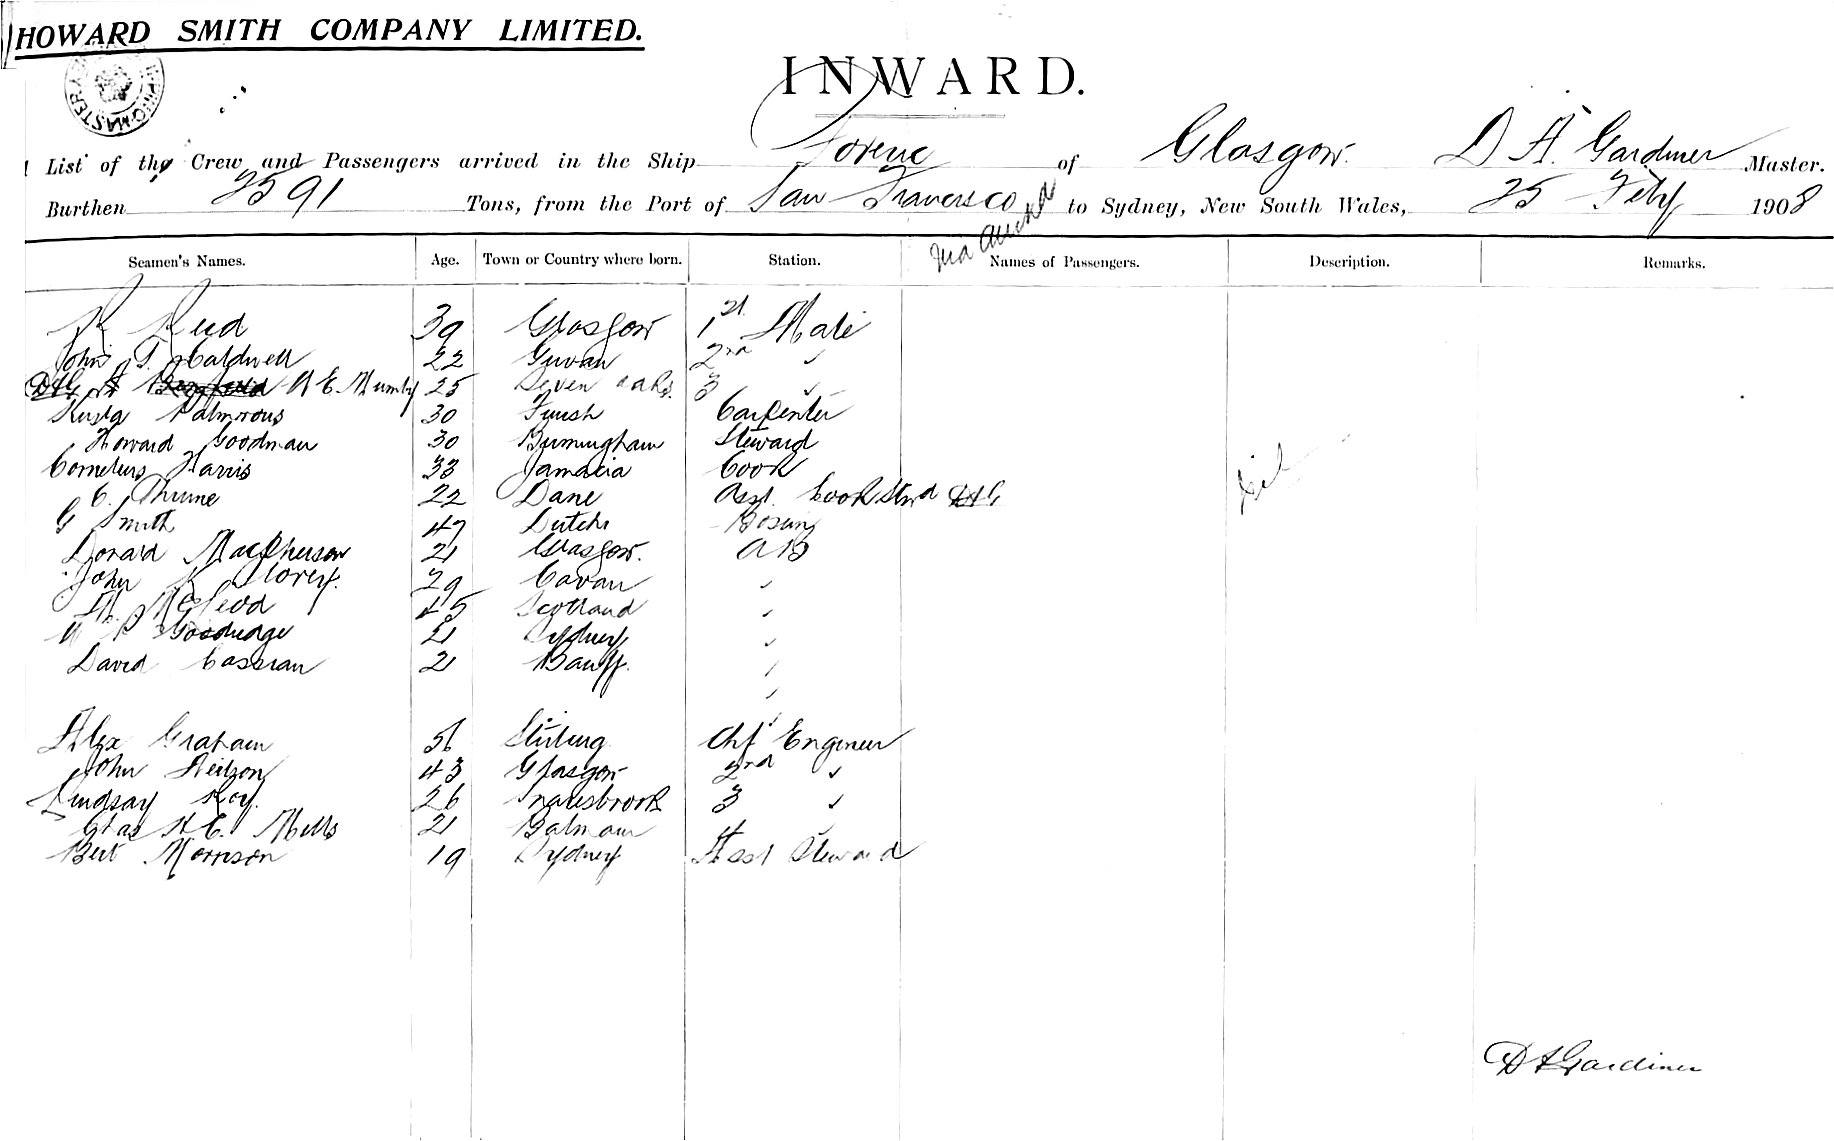 HOWARD SMITH COMPANY LIMITED.
INWARD.
List of the Crew and Passengers arrived in the Ship of Glasgow. D A Gardiner Master.
Burthen 2591 Tons, from the Port of San Francisco to Sydney, New South Wales, 25 Feby 1908
Via
Seamen's Names. Age. Town or Country where born. Station. Names of Passengers. Description. Remarks.
R Reid 39 Glasgow 1st Mate
John Caldwell 22 Govan 2nd "
A E. Mumby 25 Seven oaks. 3 "
30 Finish Carpenter
Howard Goodman 30 Birmingham Steward
Cornelius Harris 33 Jamacia Cook
C. Thume 22 Dane Asst. Cook Stwd DAG
G Smith 47 Dutch Bosun
Donald MacPherson 21 Glasgow. AB
John Storey. 29 Cavan "
McLeod 45 Scotland "
Goodridge 21 Sydney "
David Cassian 21 Banff. "
"
"
Alex Graham 51 Stirling Chf Engineer
John Neilson 43 Glasgow 2nd "
Lindsay Roy. 26 Snaresbrook 3 "
Chas H C. Mills 21 Balmain 4 "
Bert Morrison 19 Sydney Asst Steward
D A Gardiner